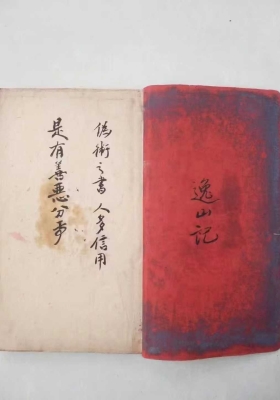 逸山記
偽術之書 人多信用
是有善惡分矣